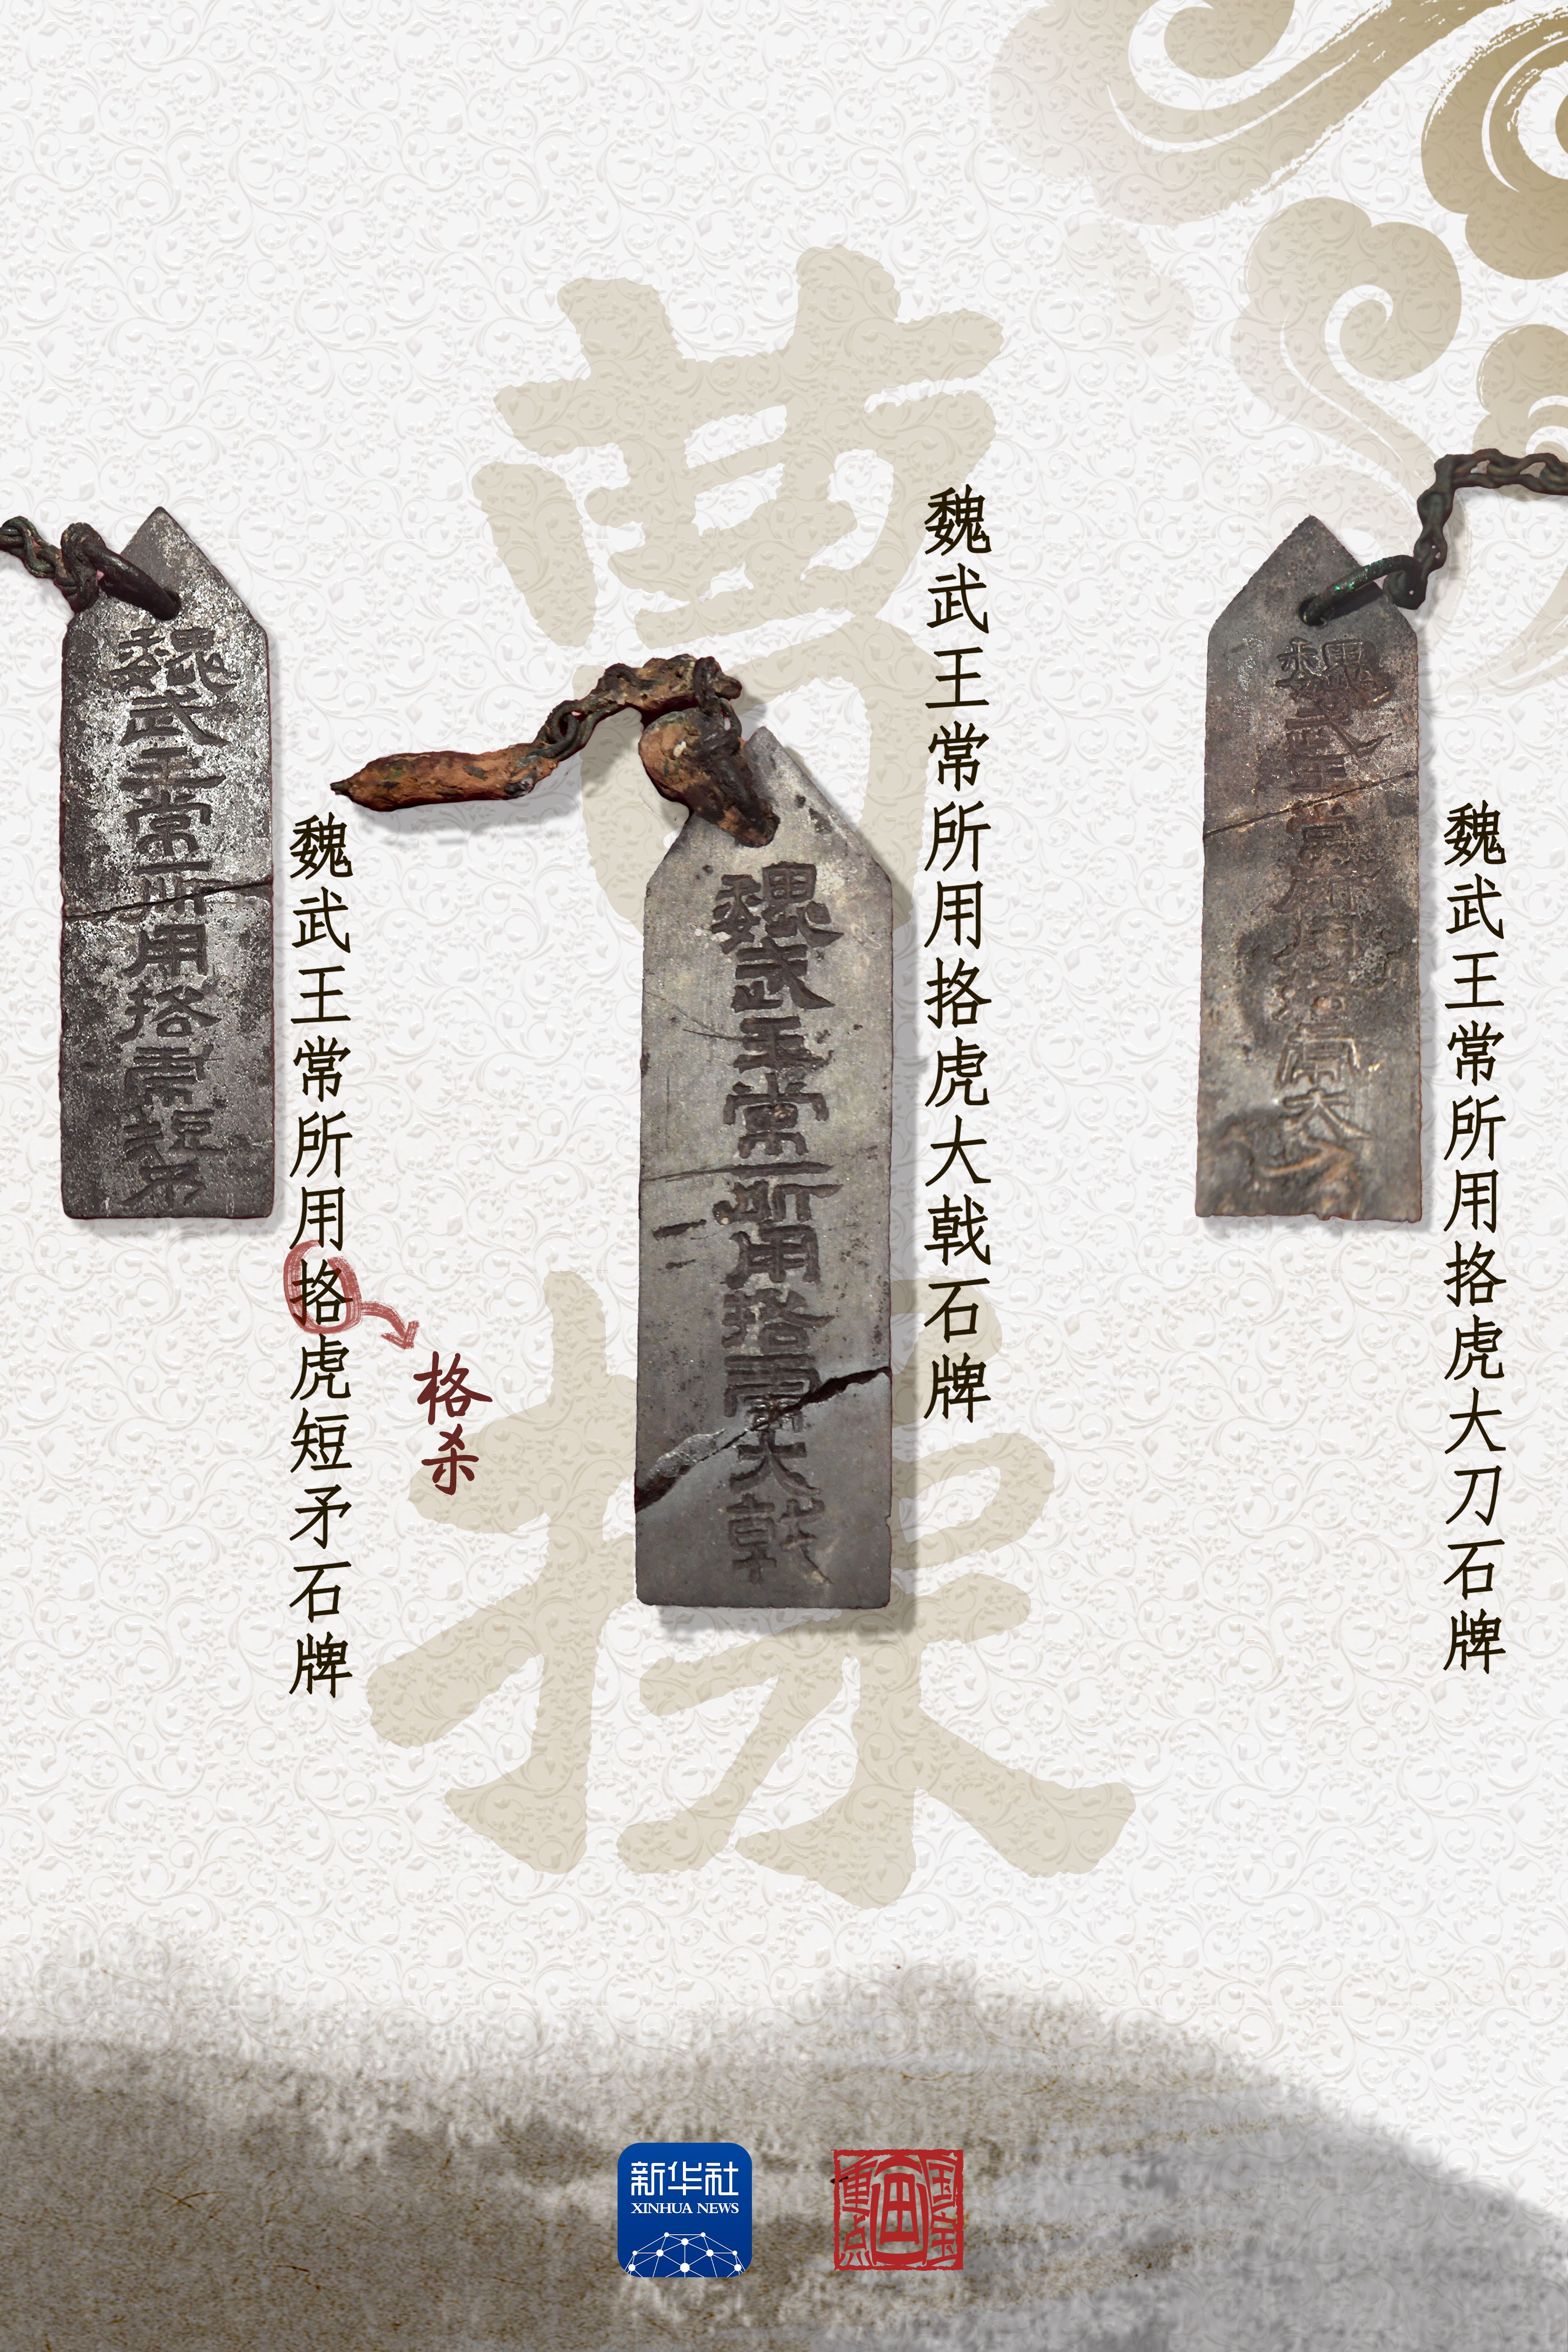 曹操
魏武王常所用挌虎大刀石牌
魏武王常所用挌虎大戟石牌
魏武王常所用挌虎短矛石牌
格杀
魏武王常所用挌虎大戟
魏武王常所用挌虎短矛
魏武王常所用挌虎大刀
新华社
XINHUA NEWS